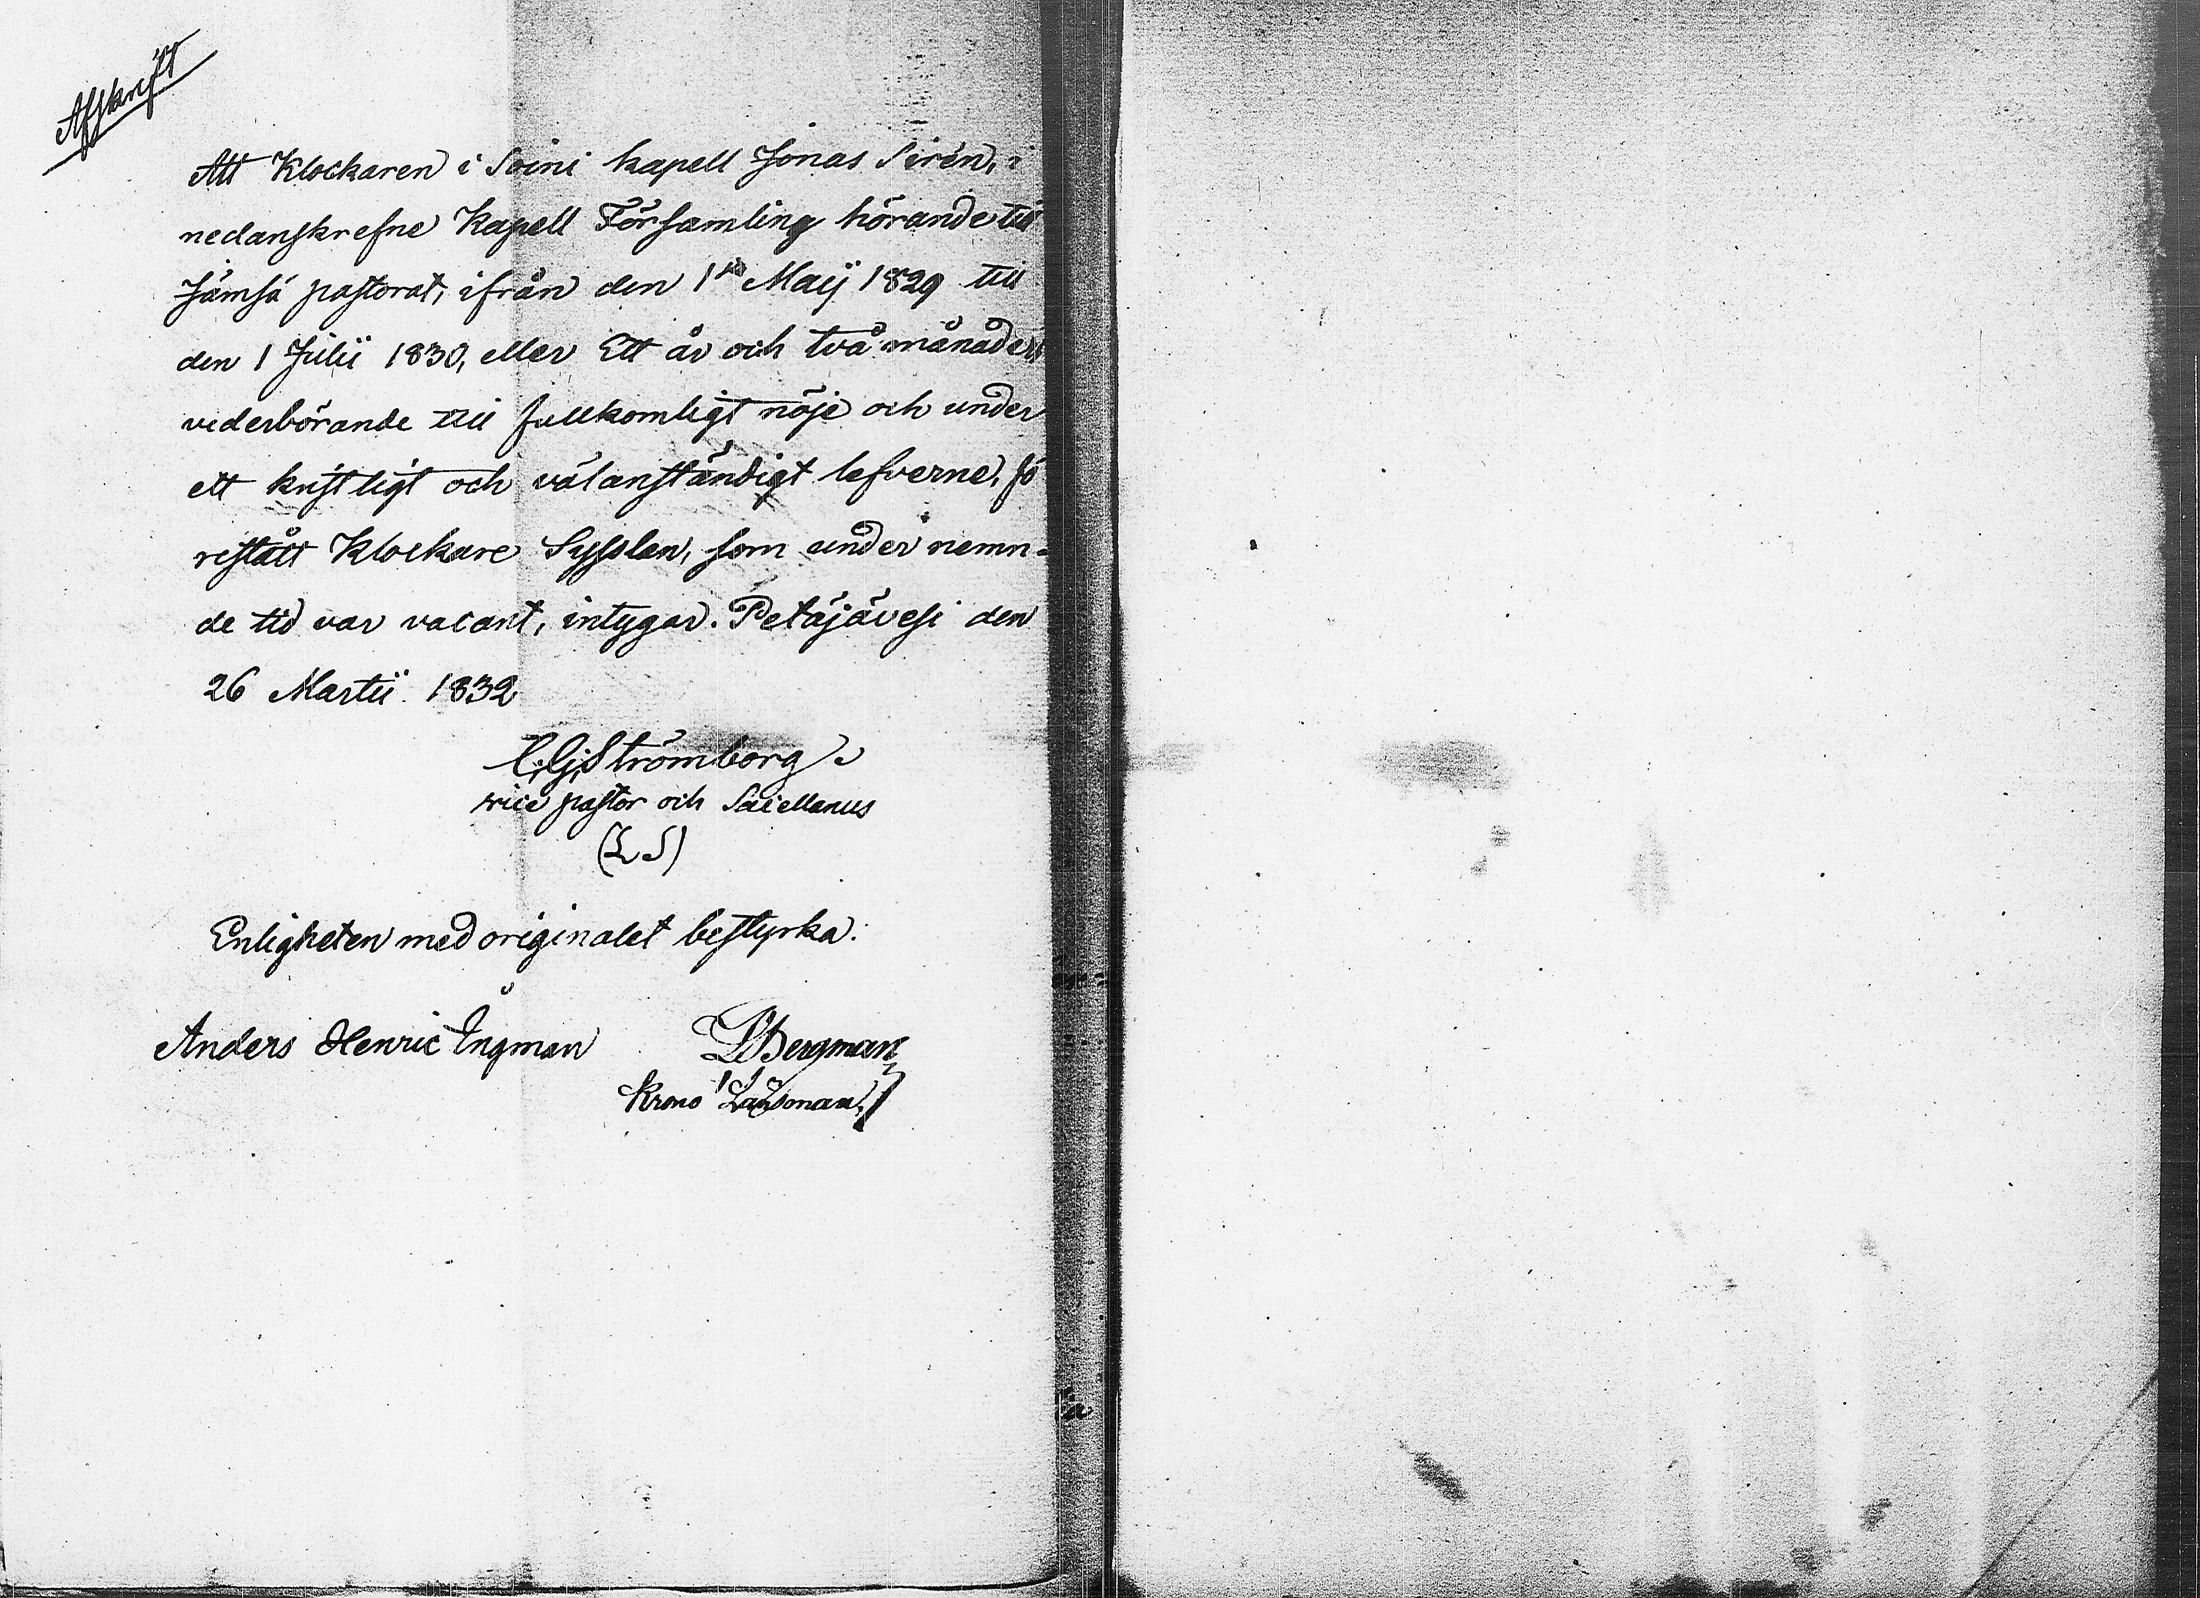 Afskrift
Att Klockaren i Soini kapell Jonas Sirén, i
nedanskrefne Kapell Församling hörande till
Jämsä pastorat, ifrån den 1sta Maij 1829 till
den 1 Julii 1830, eller Ett år och två månader
vederbörande till fullkomligt nöje och under
ett kristligt och välanständigt lefverne, fö
restått Klockare Sysslan, som under nemn-
de tid var vacant, intygar. Petäjävesi den
26 Martii 1832
C. G. Strömborg
vice pastor och Sacellanus
(L S)
Enligheten med originalet bestyrka:
Anders Henric Ingman Bergman
Krono Länsman